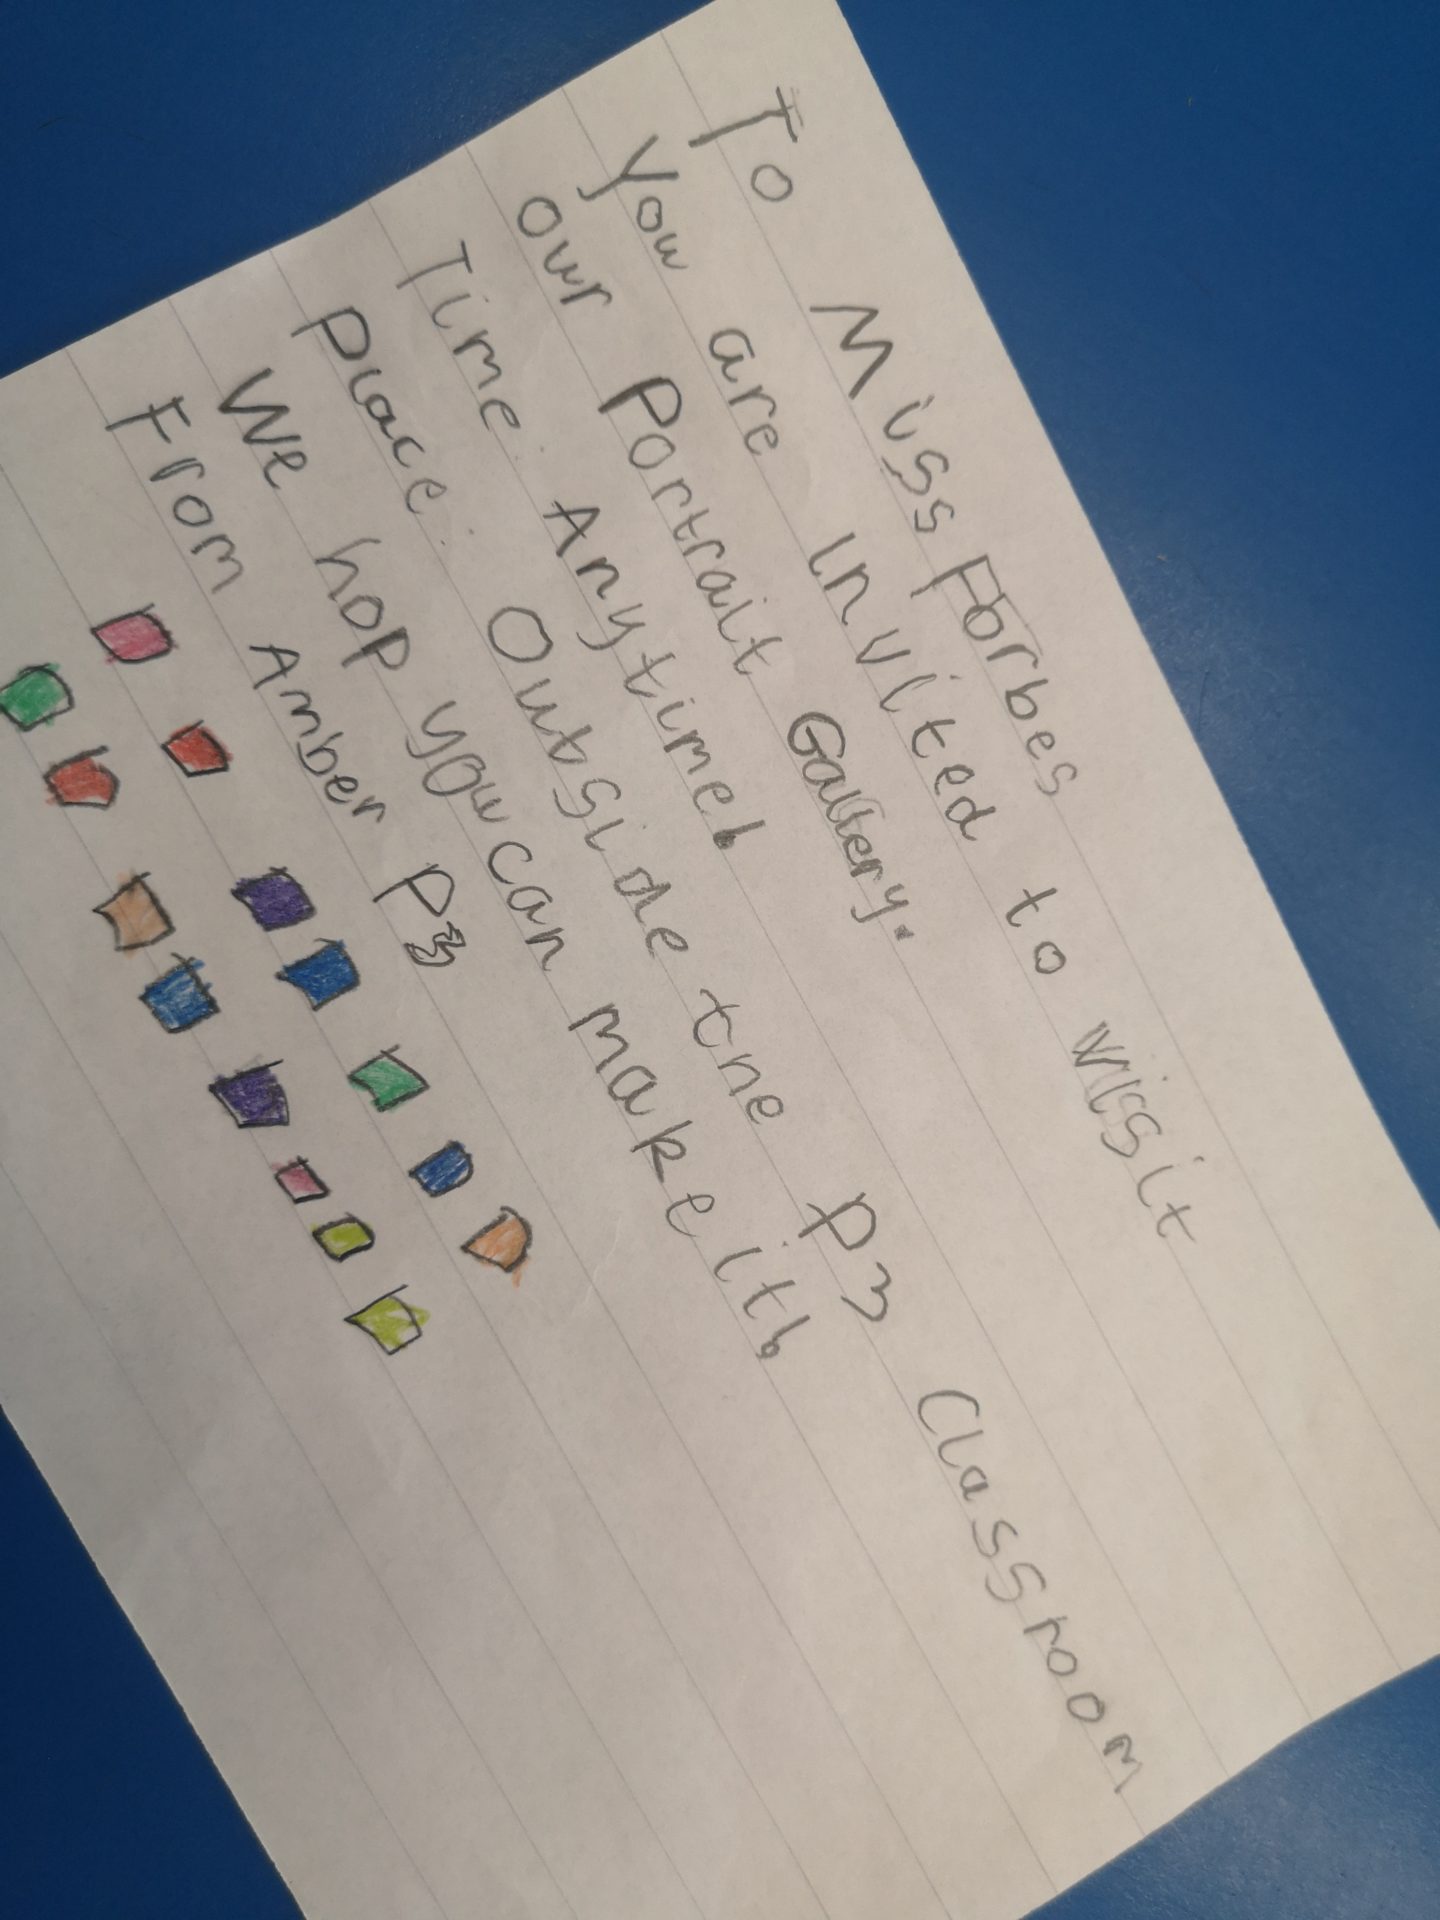 To Miss Forbes
You are invited to vissit
our Portrait Gallery.
Time: Anytime!
Place: Outside the P3 Classroom
We hop you can make it!
From Amber P3